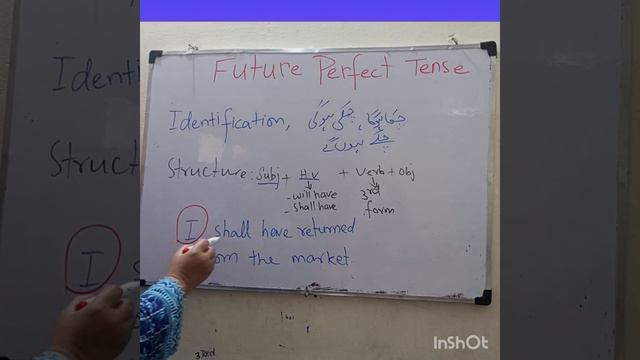 Future Perfect Tense
Identification, چکا ہوگا, چکی ہوگی
چکے ہوں گے
Structure: Subj + H.V + Verb + Obj
- will have 3rd
- shall have form
I shall have returned
om the market.
InShOt